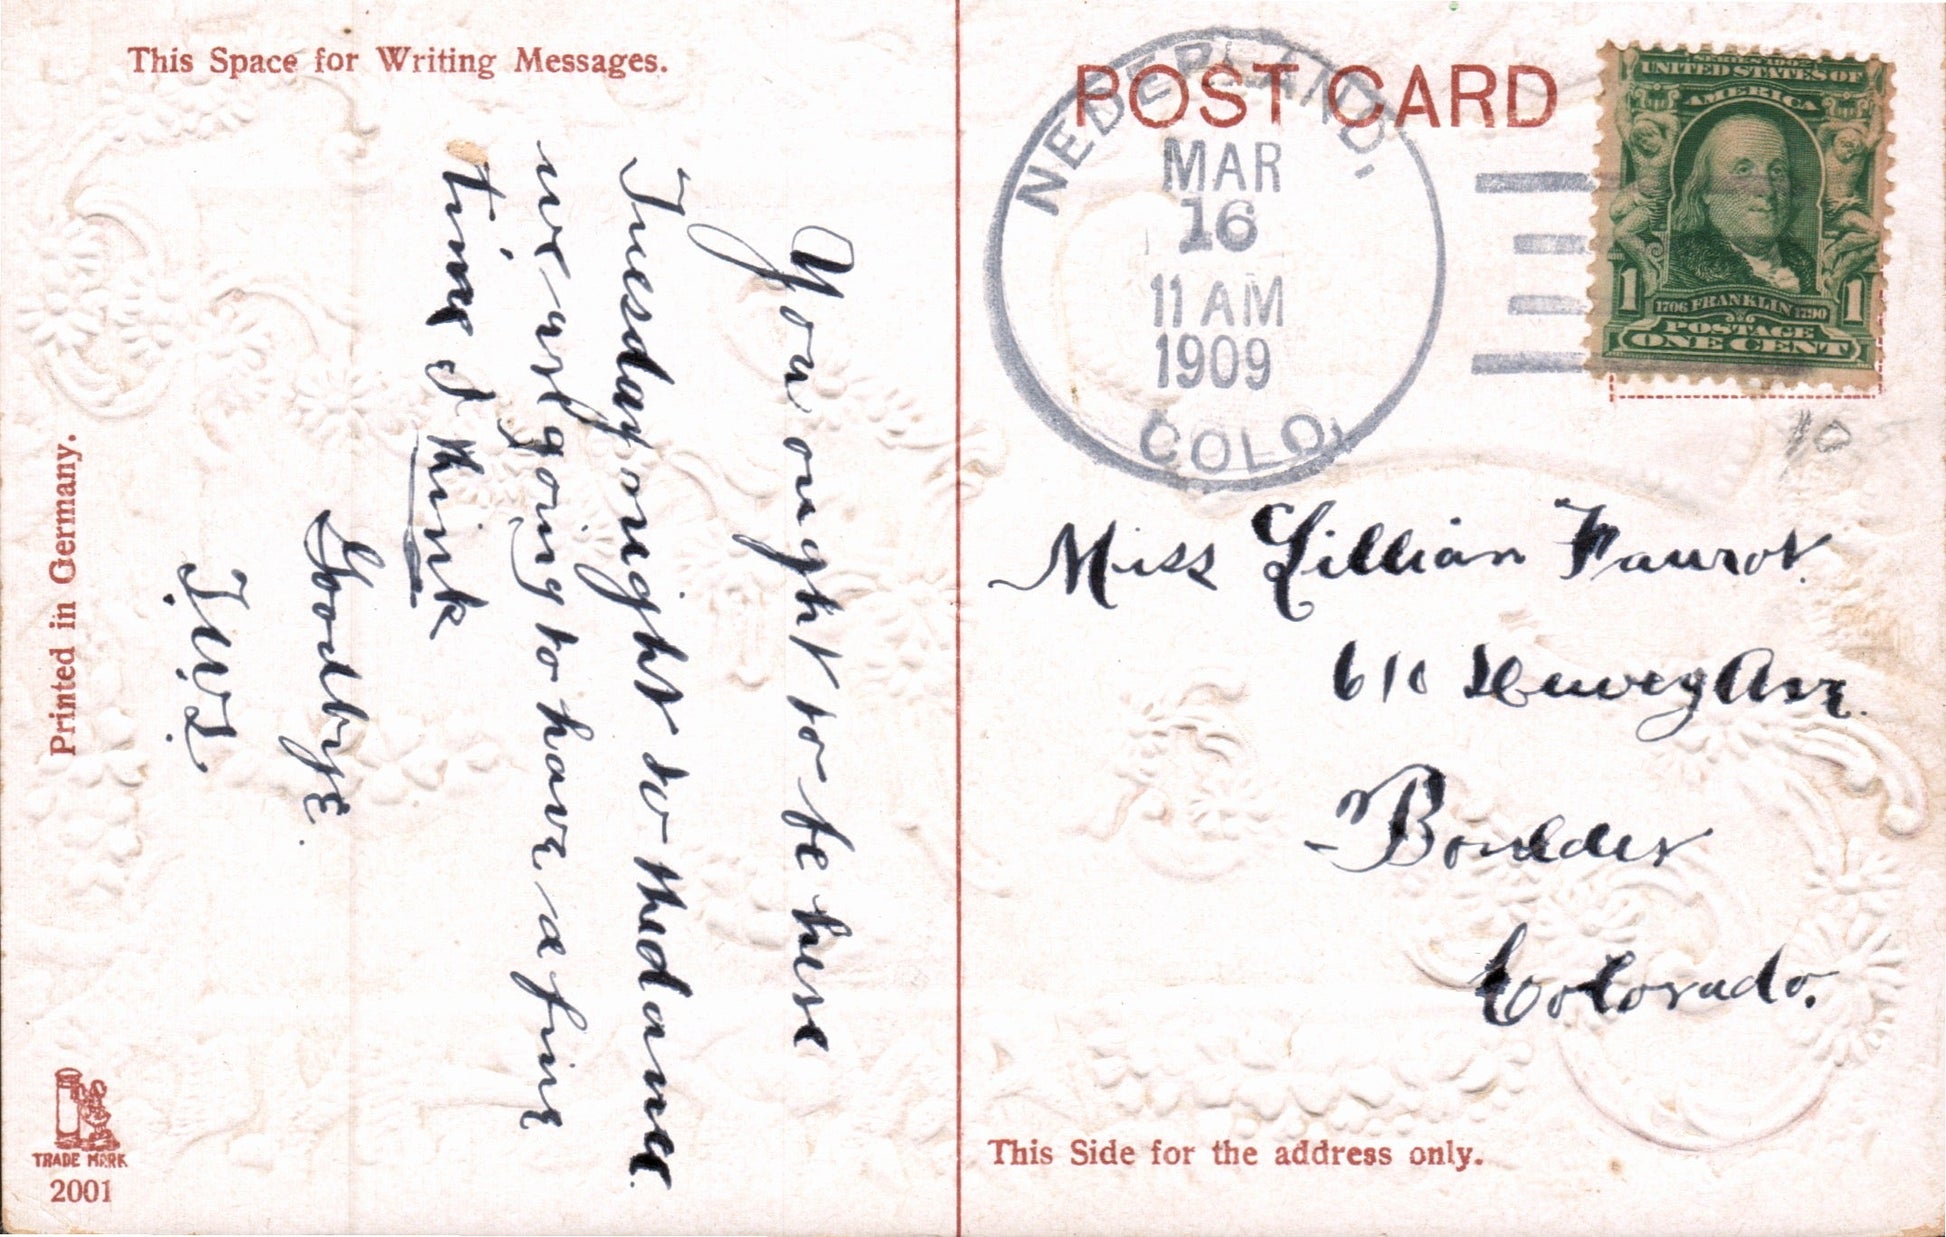 This Space for Writing Messages.
You ought to be here
Tuesday night to the dance
we are going to have a fine
time I think
Goodbye.
T.W.S.
Printed in Germany.
TRADE MARK
2001
POST CARD
NEDERLAND,
MAR
16
11 AM
1909
COLO.
SERIES 1902
UNITED STATES OF
AMERICA
1
1706 FRANKLIN 1790
1
POSTAGE
ONE CENT
10
Miss Lillian Faurot.
611 Dewey Ave.
Boulder
Colorado.
This Side for the address only.